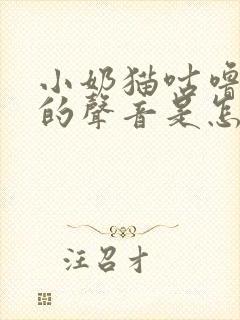 小奶猫咕噜
的聲音是怎
汪召才